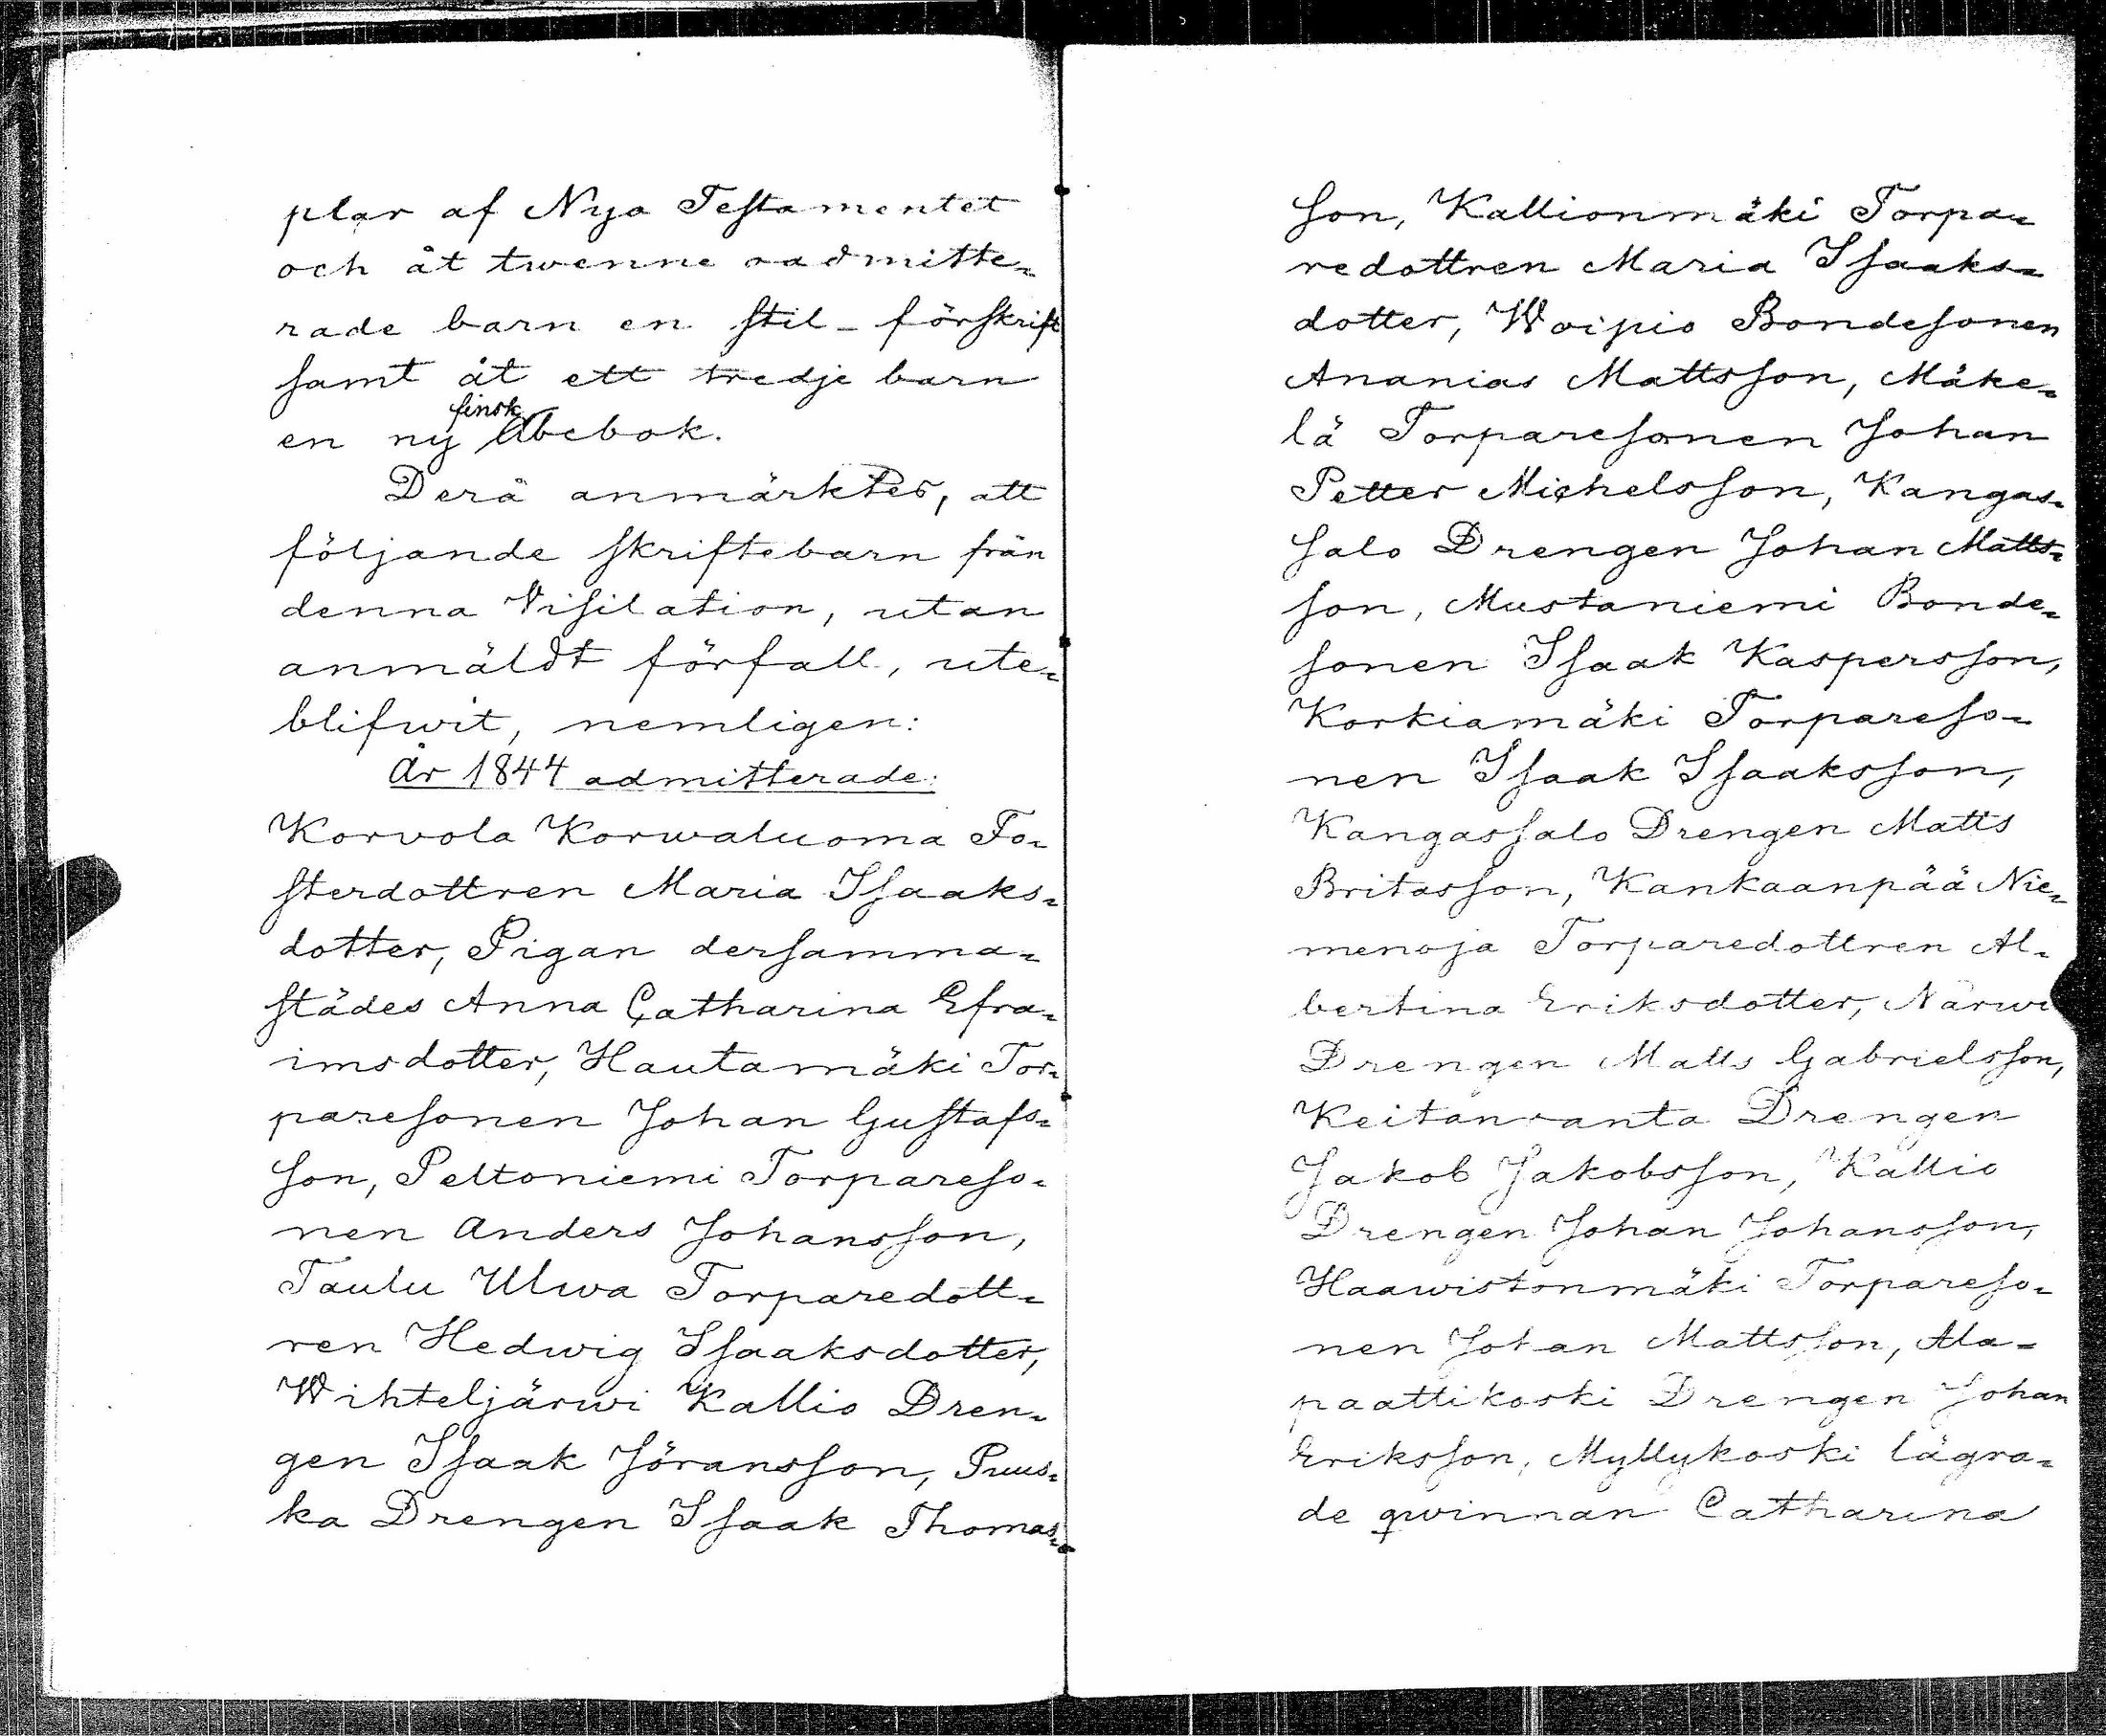 plar af Nya Testamentet
och åt twenne oadmitte-
rade barn en stil-förskrift
samt åt ett tredje barn
en ny finsk Abcbok.
Derå anmärktes, att
följande skriftebarn från
denna Visitation, utan
anmäldt förfall, ute-
blifwit, nemligen:
År 1844 admitterade:
Korvola Korwaluoma Fo-
sterdottren Maria Isaaks-
dotter, Pigan dersamma-
städes Anna Catharina Efra-
imsdotter, Hautamäki Tor-
paresonen Johan Gustafs-
son, Peltoniemi Torpareso-
nen Anders Johansson,
Taulu Ulwa Torparedott-
ren Hedwig Isaaksdotter,
Wihteljärwi Kallio Dren-
gen Isaak Jöransson, Puus-
ka Drengen Isaak Thomas-
son, Kallionmäki Torpa-
redottren Maria Isaaks-
dotter, Woipio Bondesonen
Ananias Mattsson, Mäke-
lä Torparesonen Johan
Petter Michelsson, Kangas-
salo Drengen Johan Matts-
son, Mustaniemi Bonde-
sonen Isaak Kaspersson,
Korkiamäki Torpareso-
nen Isaak Isaaksson,
Kangassalo Drengen Matts
Britasson, Kankaanpää Nie-
menoja Torparedottren Al-
bertina Eriksdotter, Närwi
Drengen Matts Gabrielsson,
Keitanranta Drengen
Jakob Jakobsson, Kallio
Drengen Johan Johansson,
Haawistonmäki Torpareso-
nen Johan Mattsson, Ala-
paattikoski Drengen Johan
Eriksson, Myllykoski lägra-
de qwinnan Catharina